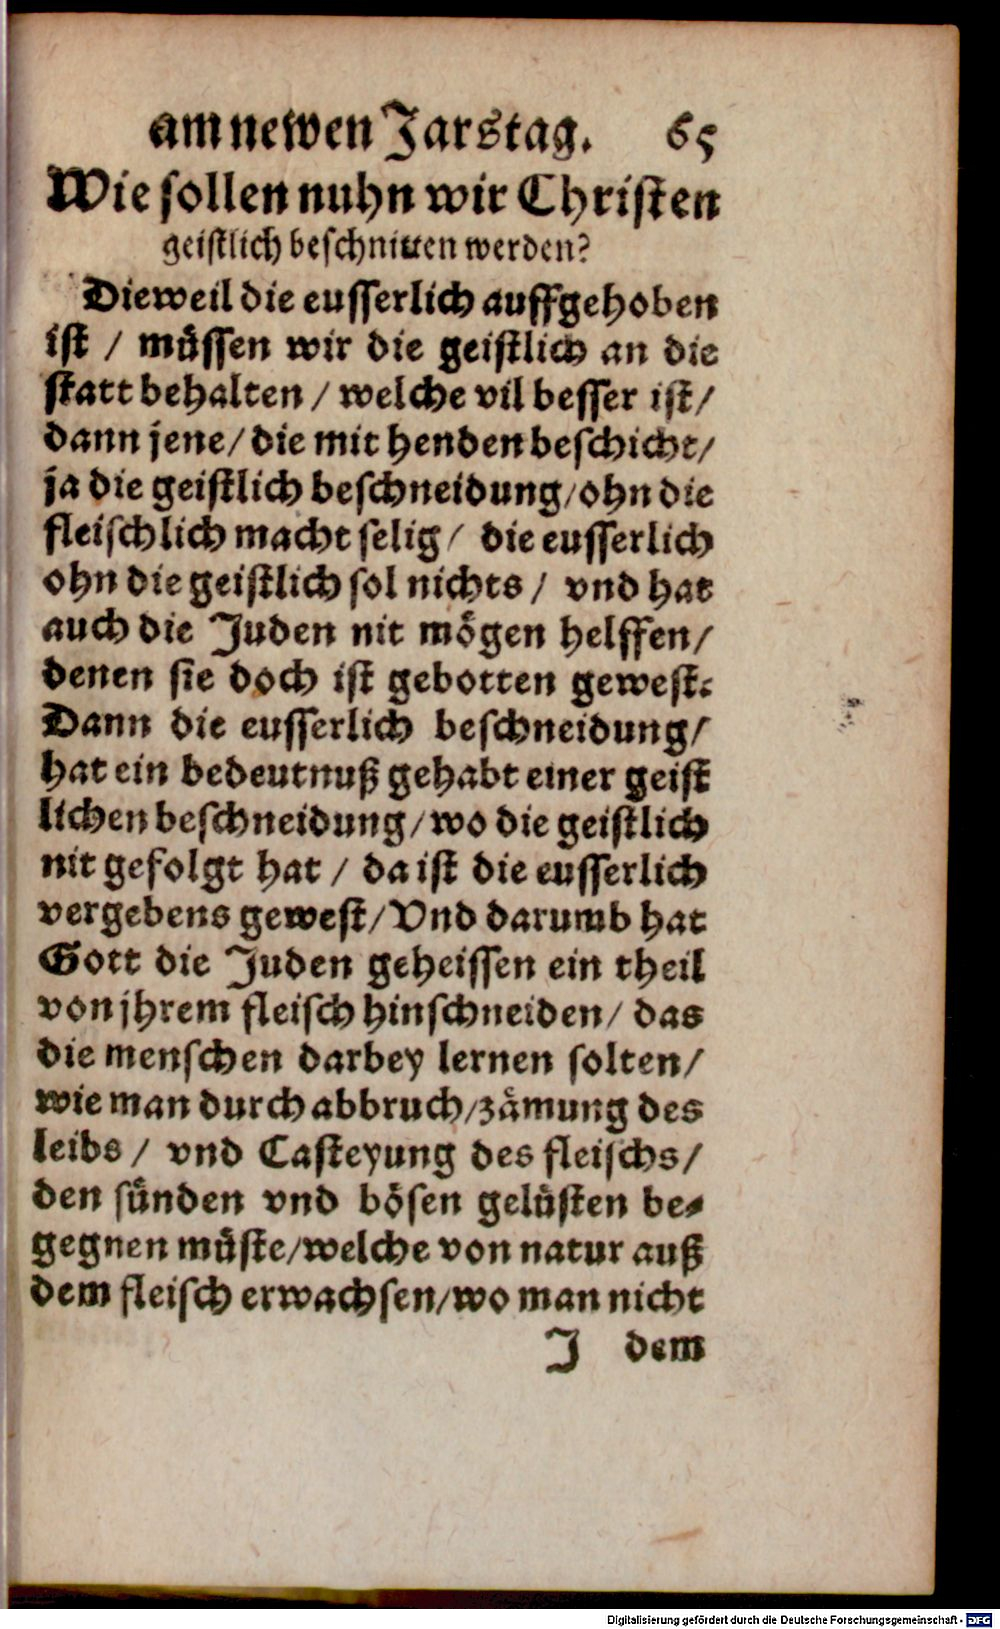 am newen Jarstag. 65
Wie sollen nuhn wir Christen
geistlich beschnitten werden?
Dieweil die eusserlich auffgehoben
ist / müssen wir die geistlich an die
statt behalten / welche vil besser ist /
dann jene / die mit henden beschicht /
ja die geistlich beschneidung / ohn die
fleischlich macht selig / die eusserlich
ohn die geistlich sol nichts / vnd hat
auch die Juden nit mögen helffen /
denen sie doch ist gebotten gewest.
Dann die eusserlich beschneidung /
hat ein bedeutnuß gehabt einer geist
lichen beschneidung / wo die geistlich
nit gefolgt hat / da ist die eusserlich
vergebens gewest / Vnd darumb hat
Gott die Juden geheissen ein theil
von jhrem fleisch hinschneiden / das
die menschen darbey lernen solten /
wie man durch abbruch / zämung des
leibs / vnd Casteyung des fleischs /
den sünden vnd bösen gelüsten be⸗
gegnen müste / welche von natur auß
dem fleisch erwachsen / wo man nicht
J dem
Digitalisierung gefördert durch die Deutsche Forschungsgemeinschaft - DFG